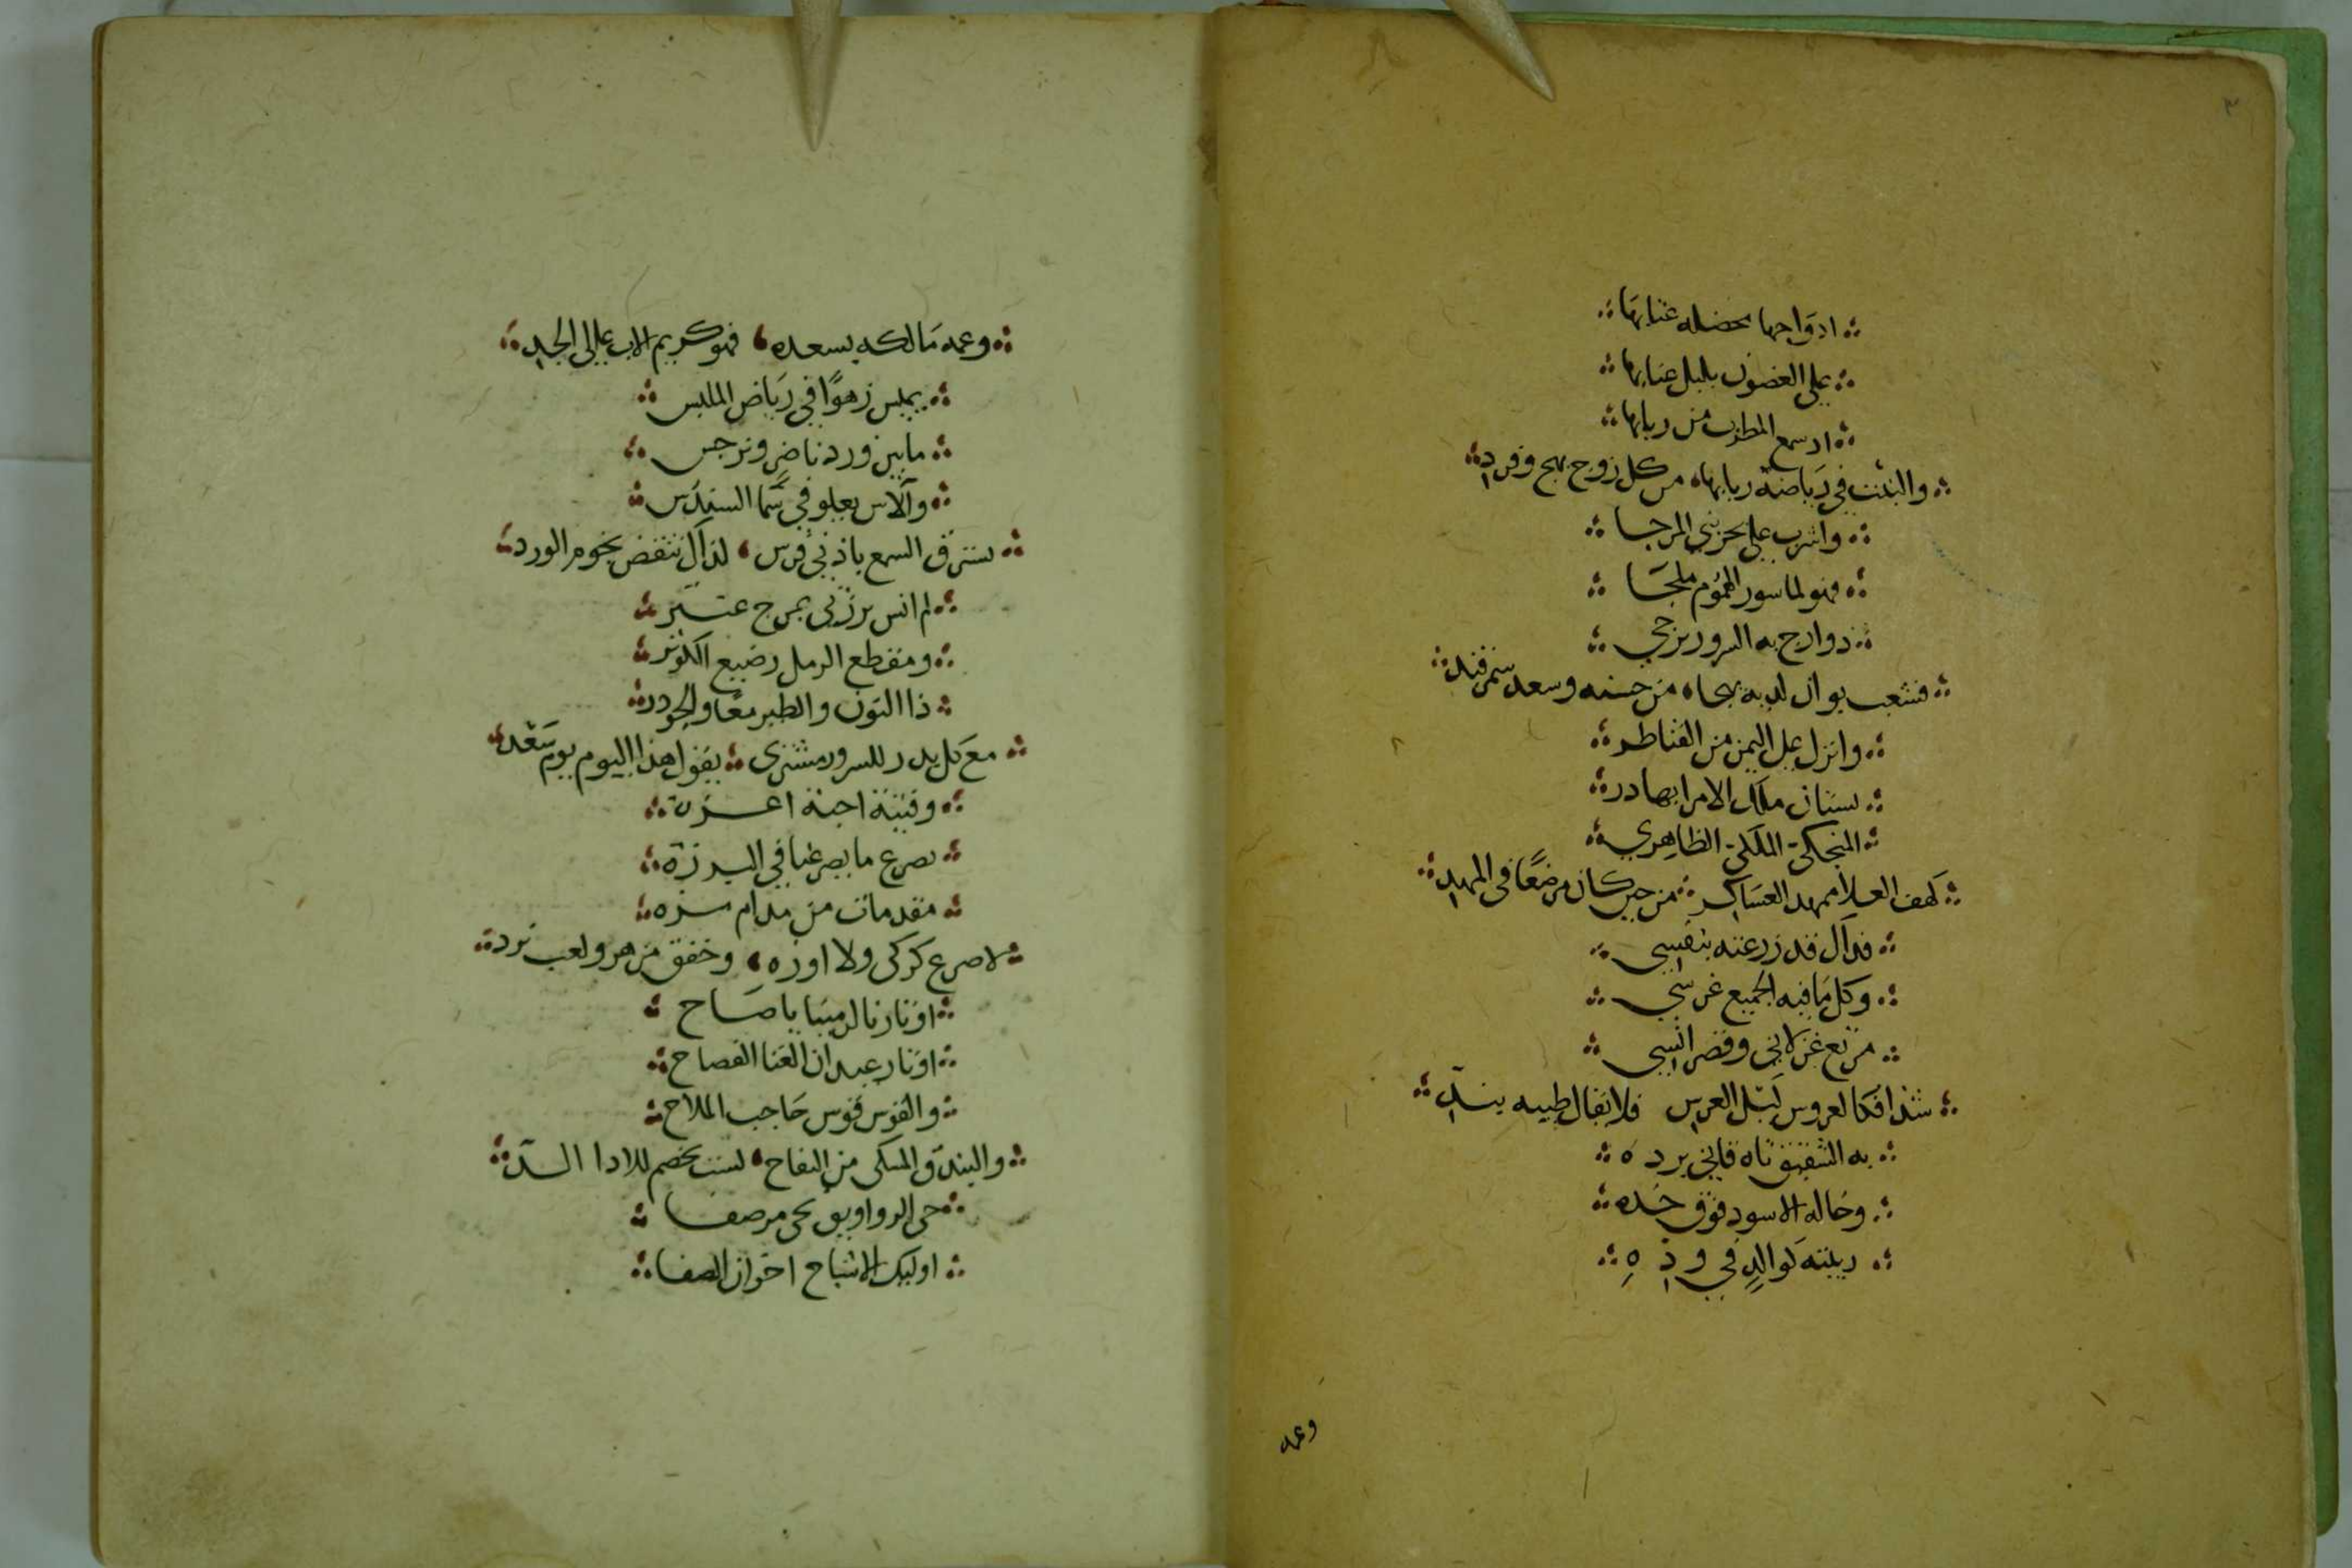 ٣
ادواحها مخضلة عنابها
على الغصون بلبل غنابها
اد سمع المطرب من ربابها
والبنت في رياضة ربابها من كل زوج بهج وفرد
واشرب على بحر بني المرجا
فهو لماسور الهموم ملجا
دوارح به السرور يزجي
فشعب بوان لديه من حسنه وسعد سمرقند
وانزل على اليمن من القناطر
بستان ملك الامرا بهادر
المنجكي الملكي الظاهري
كهف العلا ممهد العساكر من حين كان مرضعًا في المهد
فدآل قد زرعته بنفسي
وكل ما فيه الجميع غرسي
مرتع غزلاني وقصر انسي
شذا فكالعروس ليل العرس فلا يقال طيبه بند
به الشقيق تاه فاني برده
وخاله الاسود فوق خده
ربيته كوالد في وده
وعمه
وعمه مالكه يسعده فهو كريم الاب عالى الجد
يميس زهوًا في رياض الملبس
مابين ورد ناضر ونرجس
والآس يعلو في سما السندس
يسترق السمع باذني فرس لذاك تنقض نجوم الورد
لم انس برزتي بمرج عنتر
ومقطع الرمل رضيع الكوثر
ذا النون والطير معًا والجودر
مع كل بدر للسرور مشترى يقول هذا اليوم يوم سعد
وفتية احبة اعزة
بصرع ما بصرعنا في البرزة
مقدمات من مدام مزه
لا صرع كركى ولا اوزه وخفق مزهر ولعب نرد
اوتارنا لرمينا يا صاح
اوتار عيدان الغنا الفصاح
والقوس قوس حاجب الملاح
والبندق المسكى من التفاح لست بخصم للادا الالد
حى الرواويق بحى مرصفا
اوليك الاشباح اخوان الصفا